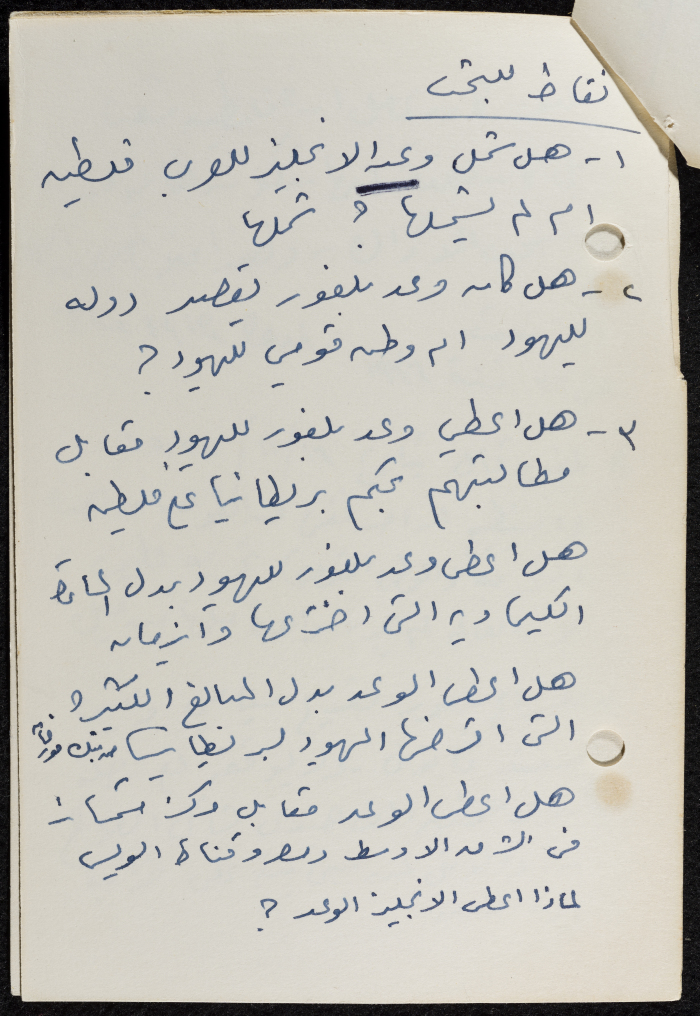 نقاط للبحث
١ - هل شمل وعد الانجليز للعرب فلسطين
ام لم يشملها ؟ شملها
٢ - هل كان وعد بلفور يقصد دوله
لليهود ام وطن قومي لليهود ؟
٣ - هل اعطي وعد بلفور لليهود مقابل
مطالبتهم بحكم بريطانيا على فلسطين
هل اعطى وعد بلفور لليهود بدل
الكيماويه التى اخترعها وايزمان
هل اعطى الوعد بدل المبالغ الكثيره
التى اقرضها اليهود لبريطانيا
هل اعطى الوعد مقابل مركز ممتاز
فى الشرق الاوسط ومصر وقناة السويس
لماذا اعطى الانجليز الوعد ؟